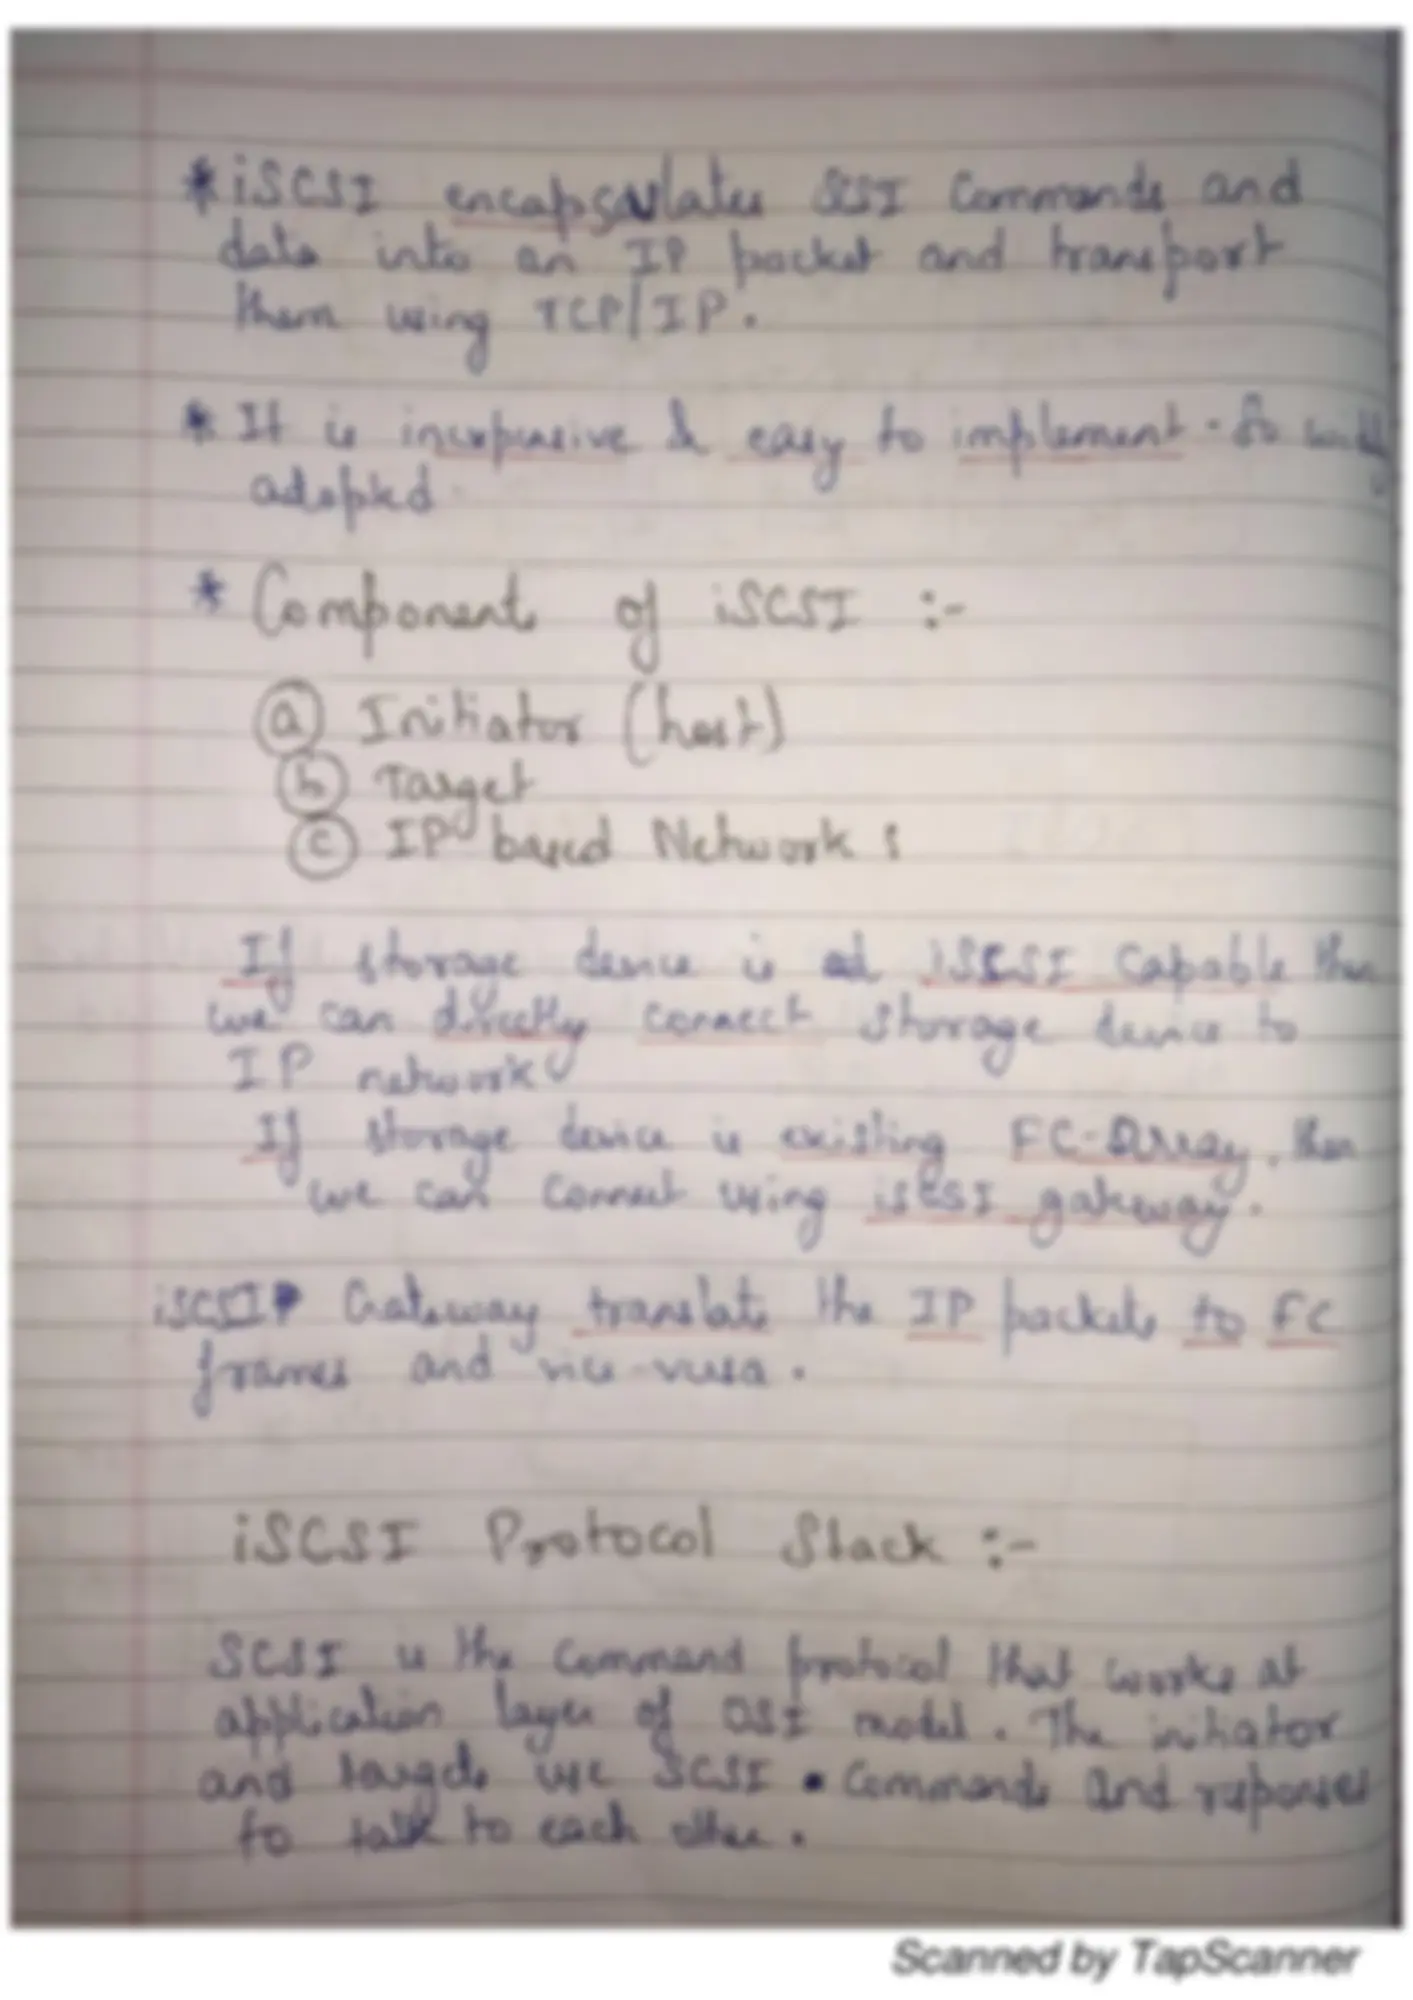 * iSCSI encapsulates SCSI Commands and
data into an IP packet and transport
them using TCP/IP.
* It is inexpensive & easy to implement. So widely
adopted.
* Components of iSCSI :-
(a) Initiator (host)
(b) Target
(c) IP based Network :
If storage device is iSCSI capable then
we can directly connect storage device to
IP network
If storage device is existing FC-Array, then
we can connect using iSCSI gateway.
iSCSI Gateway translate the IP packets to FC
frames and vice-versa.
iSCSI Protocol Stack :-
SCSI is the command protocol that works at
application layer of OSI model. The initiator
and targets use SCSI Commands and responses
to talk to each other.
Scanned by TapScanner